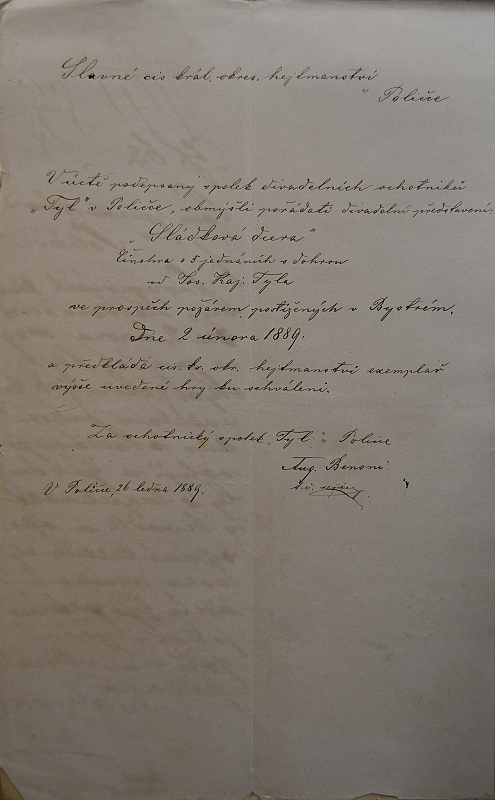 Slavné cis král. okres. hejtmanství
v Poličce
V úctě podepsaný spolek divadelních ochotníků
„Tyl" v Poličce, obmýšlí pořádati divadelní představení
„Sládková dcera"
Činohra o 5 jednáních s dohrou
od Jos. Kaj. Tyla
ve prospěch požárem postižených v Bystrém.
Dne 2 února 1889.
a předkládá cis. kr. okr. hejtmanství exemplář
výše uvedené hry ku schválení.
Za ochotnický spolek „Tyl" v Poličce
Aug. Benoni
V Poličce, 26 ledna 1889.